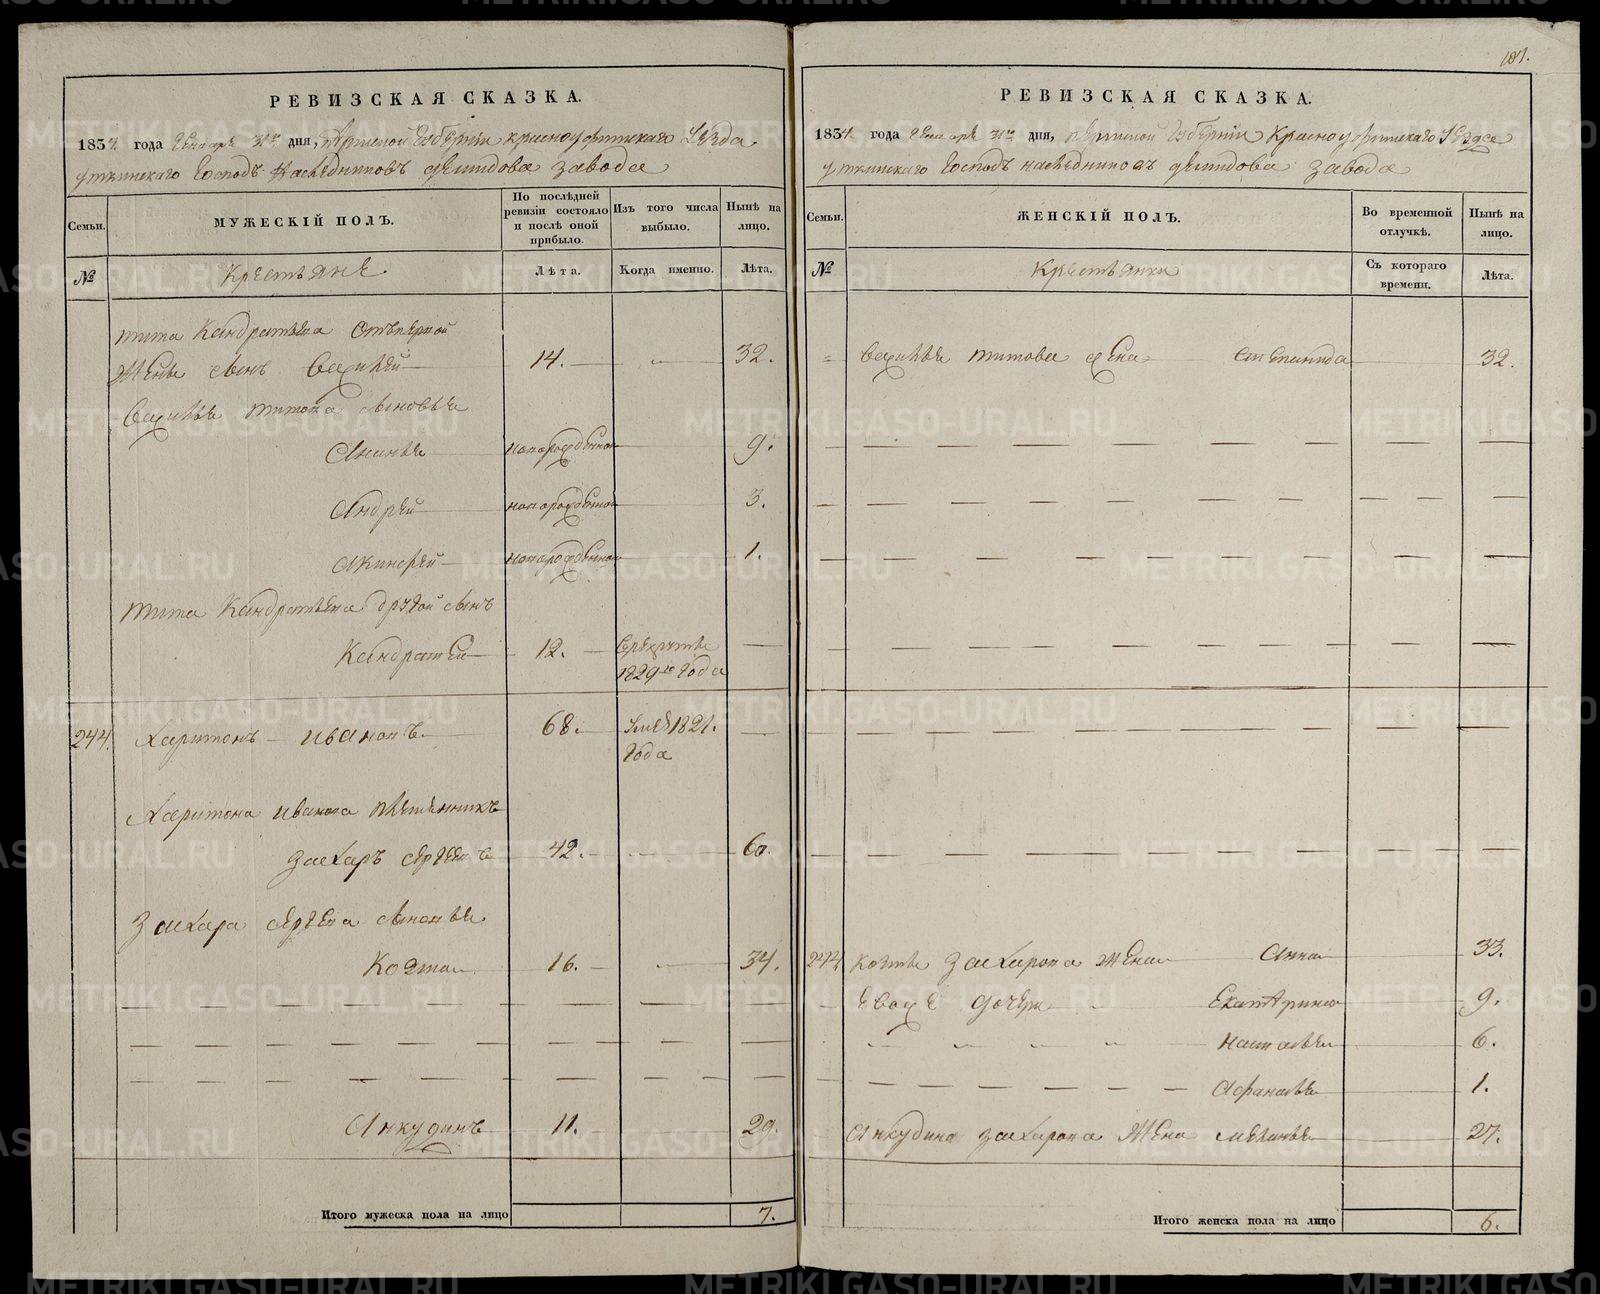 187.
РЕВИЗСКАЯ СКАЗКА.
1834 года Генваря 31го дня, Пермской Губерніи Красноуфимскаго Уезда
уткинскаго Господъ Наследниковъ демидова завода
Семьи.
МУЖЕСКІЙ ПОЛЪ.
По послѣдней ревизіи состояло и послѣ оной прибыло.
Изъ того числа выбыло.
Нынѣ на лицо.
№
Крестьяне
Лѣта.
Когда именно.
Лѣта.
тита Кандратьева Отъпервой
жены сынъ Василей 14. 32.
Василья титова сыновья
Ананья новорожденной 9.
Андрей новорожденной 3.
новорожденной 1.
Тита Кандратьева другой сынъ
Кандратей 12. Врекруты
1829го года
244. Харитонъ Ивановъ. 68. Умеръ 1821.
года
Харитона Иванова племянникъ
Захаръ Сергеевъ 42. 60.
Захара Сергеева сыновья
Козма 16. 34.
Анкудинъ 11. 29.
Итого мужеска пола на лицо 7.
РЕВИЗСКАЯ СКАЗКА.
1834 года Генваря 31го дня, Пермской Губерніи Красноуфимскаго Уезда
уткинскаго Господъ наследниковъ демидова завода
Семьи.
ЖЕНСКІЙ ПОЛЪ.
Во временной отлучкѣ.
Нынѣ на лицо.
№
Крестьянки
Съ котораго времени.
Лѣта.
Василья титова жена Степанида 32.
244. Козмы Захарова жена Анна 33.
Евоже дочери Екатерина 9.
Наталья 6.
Афанасья 1.
Анкудина Захарова жена Меланья 27.
Итого женска пола на лицо 6.
METRIKI.GASO-URAL.RU